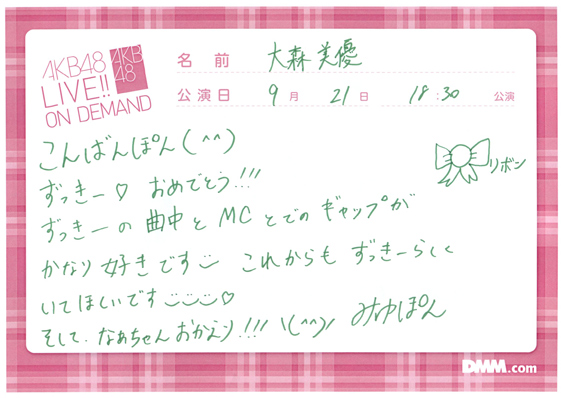 AKB48
LIVE!!
ON DEMAND
AKB
48
名前 大森美優
公演日 9月 21日 18:30 公演
こんばんぽん(^^)
ずっきー♡ おめでとう!!!
リボン
ずっきーの曲中とMCとでのギャップが
かなり好きです これからも ずっきーらしく
いてほしいです♡
そして、なぁちゃんおかえり!!! \(^^)/ みゆぽん
DMM.com